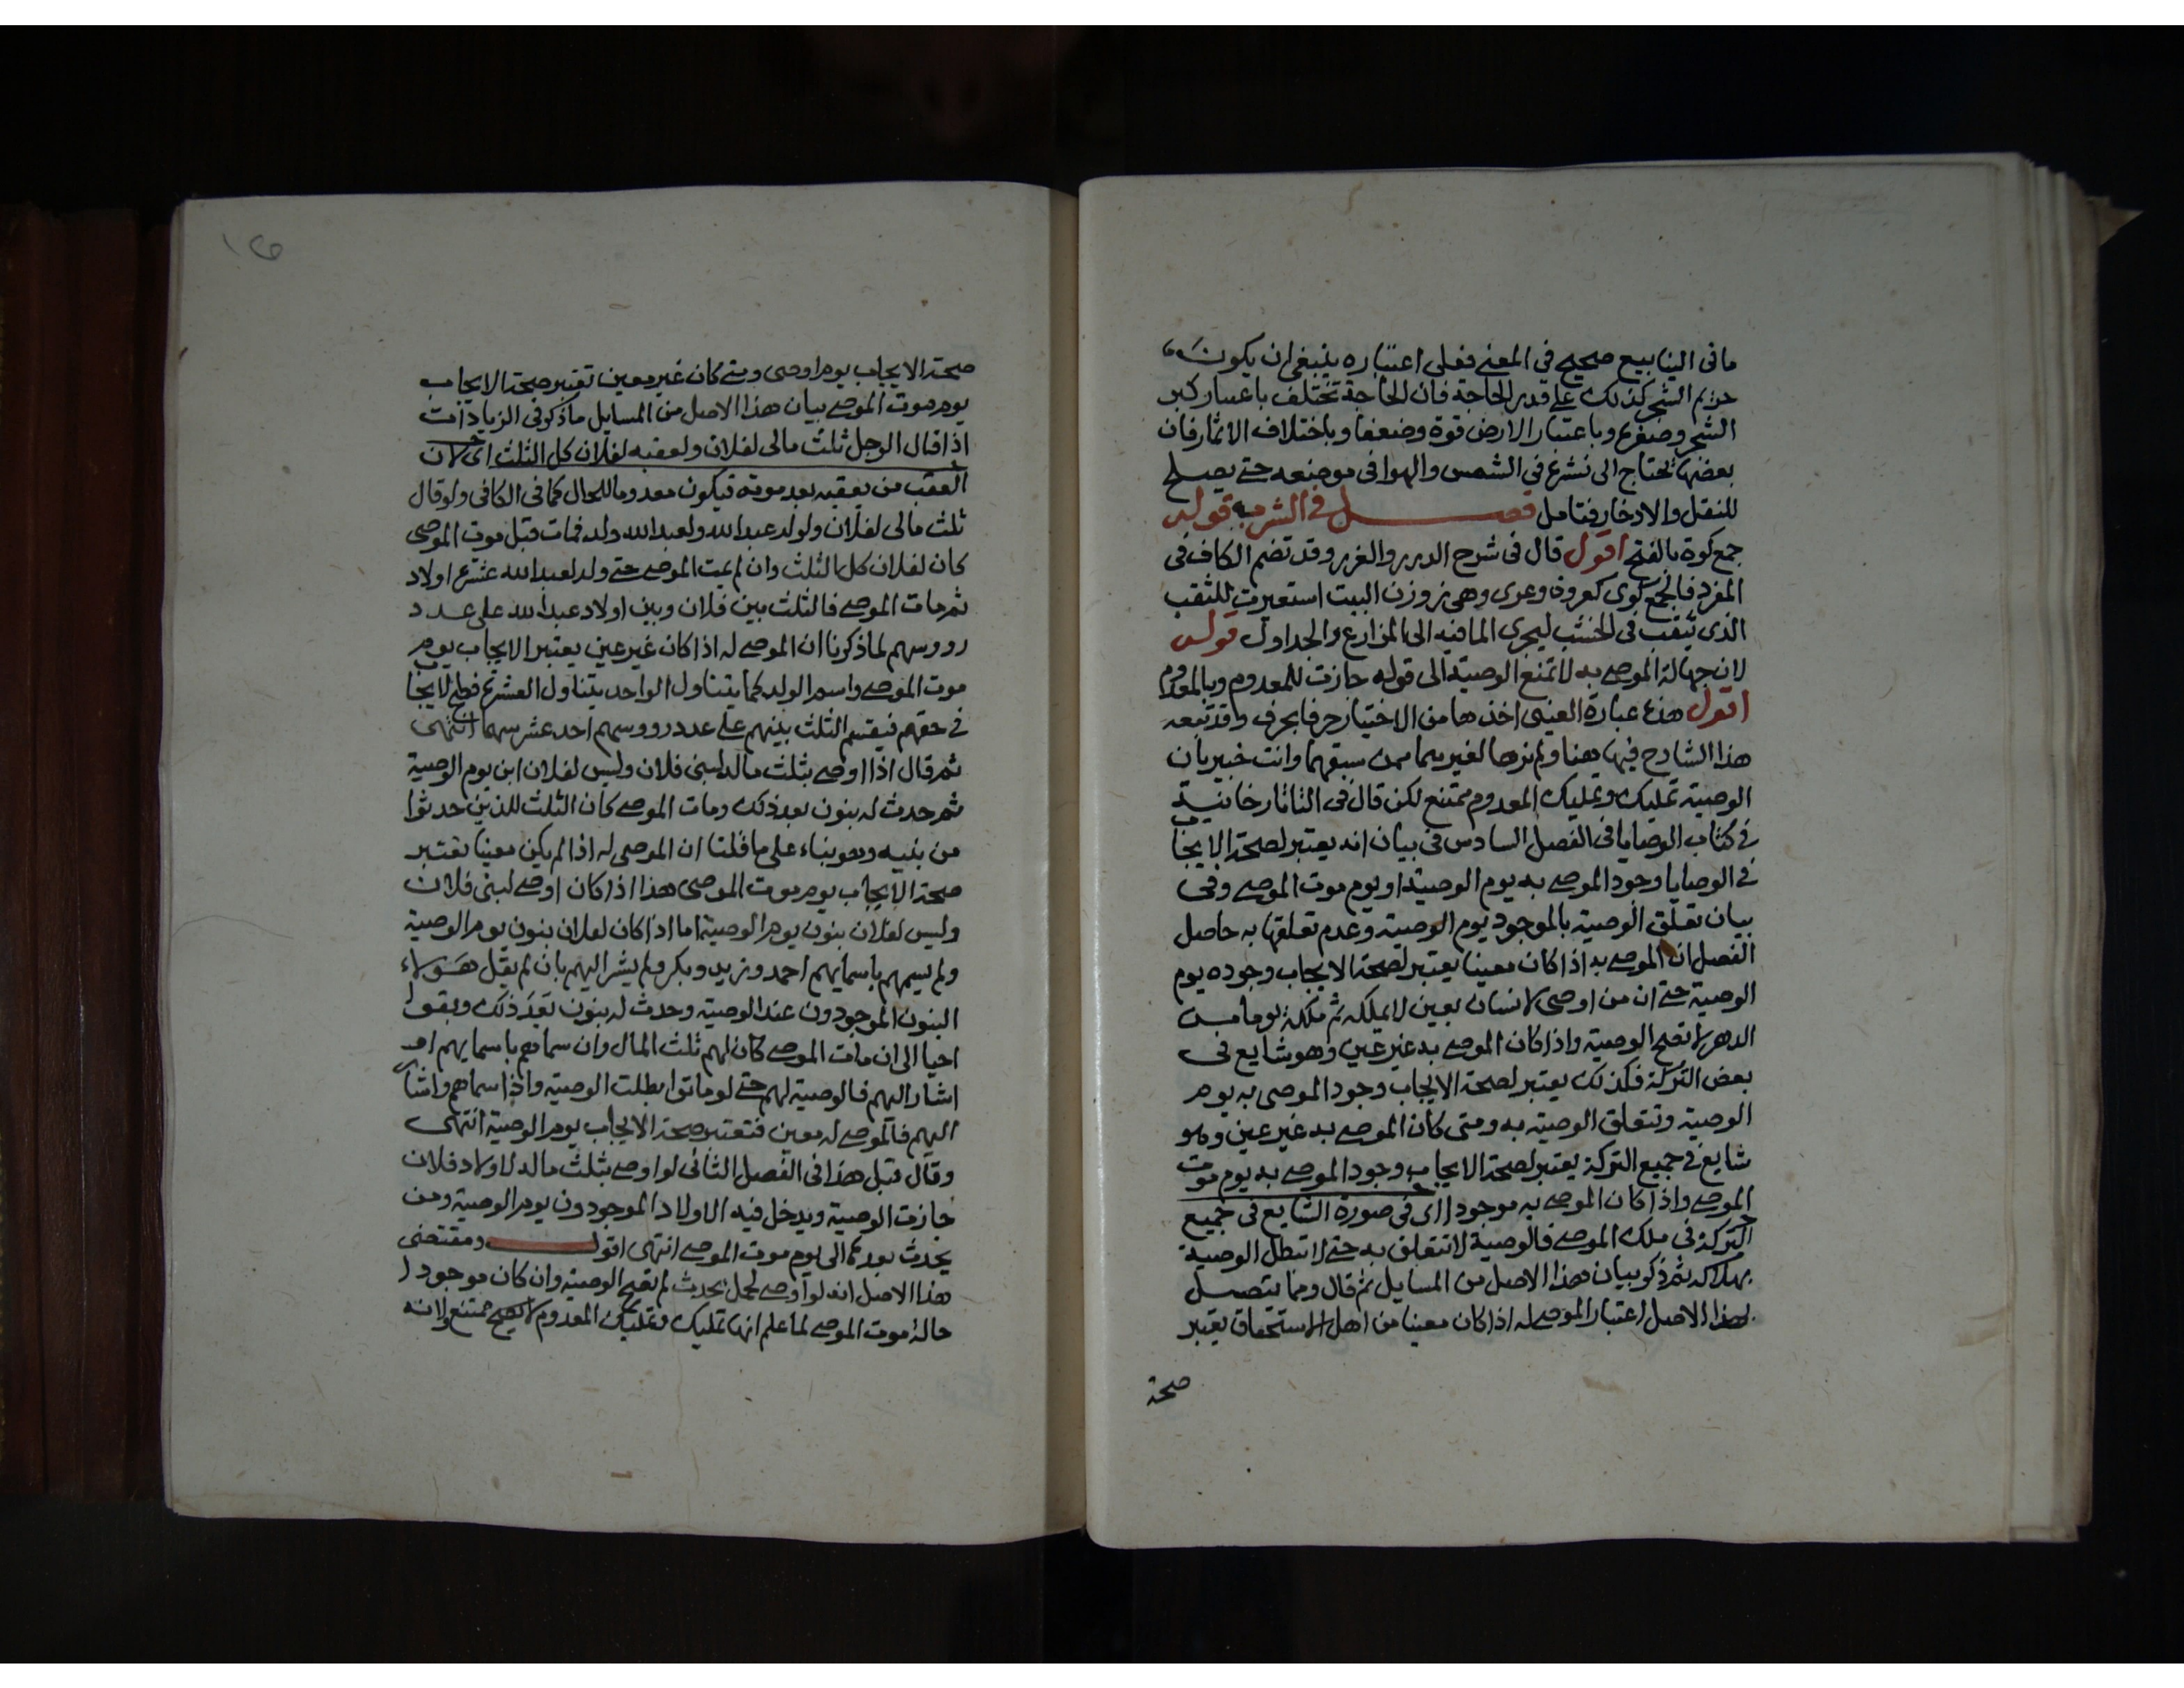 ما فى الينابيع صحيح فى المعنى فعلى اعتباره ينبغى ان يكون
حريم الشجر كذلك على قدر الحاجة فان الحاجة تختلف باعتبار كبر
الشجر وصغره وباعتبار الارض قوة وضعفا وباختلاف الاثمار فان
بعضها يحتاج الى نشره فى الشمس والهوا فى موضعه حتى يصلح
للنقل والادخار فتامل فصل فى الشرب قوله
جمع كوة بالفتح اقول قال فى شرح الدرر والغرر وقد تضم الكاف فى
المفرد فالجمع كوى كعروة وعرى وهى روزن البيت استعيرت للثقب
الذى يثقب فى الخشب ليجرى الما فيه الى المزارع والجداول قوله
لان جهالة الموصى به لا تمنع الوصية الى قوله جازت للمعدوم وبالمعدوم
اقول هذه عبارة العينى اخذها من الاختيار حرفا بحرف وقد تبعه
هذا الشارح فيها هنا ولم نرها لغيرهما ممن سبقهما وانت خبير بان
الوصية تمليك وتمليك المعدوم ممتنع لكن قال فى التاتارخانية
فى كتاب الوصايا فى الفصل السادس فى بيان انه يعتبر لصحة الايجاب
فى الوصايا وجود الموصى به يوم الوصية او يوم موت الموصى وفى
بيان تعلق الوصية بالموجود يوم الوصية وعدم تعلقها به حاصل
الفصل ان الموصى به اذا كان معينا يعتبر لصحة الايجاب وجوده يوم
الوصية حتى ان من اوصى لانسان بعين لا يملكه ثم ملكه يوما من
الدهر لا تصح الوصية واذا كان الموصى به غير عين وهو شايع فى
بعض التركة فكذلك يعتبر لصحة الايجاب وجود الموصى به يوم
الوصية وتتعلق الوصية به ومتى كان الموصى به غير عين وهو
شايع فى جميع التركة يعتبر لصحة الايجاب وجود الموصى به يوم موت
الموصى واذا كان الموصى به موجودا اى فى صورة الشايع فى جميع
التركة فى ملك الموصى فالوصية لا تتعلق به حتى لا تبطل الوصية
بهلاكه ثم ذكر بيان هذا الاصل من المسايل ثم قال ومما يتصل
بهذا الاصل اعتبار الموصى له اذا كان معينا من اهل الاستحقاق يعتبر
صحة
صحة الايجاب يوم اوصى ومتى كان غير معين تعتبر صحة الايجاب
يوم موت الموصى بيان هذا الاصل من المسايل ما ذكر فى الزيادات
اذا قال الرجل ثلث مالى لفلان ولعقبه لفلان كل الثلث اى لان
العقب من يعقبه بعد موته فيكون معدوما للحال كما فى الكافى ولو قال
ثلث مالى لفلان ولولد عبد الله ولعبد الله ولد فمات قبل موت الموصى
كان لفلان كل الثلث وان لم يمت الموصى حتى ولد لعبد الله عشرة اولاد
ثم مات الموصى فالثلث بين فلان وبين اولاد عبد الله على عدد
رووسهم لما ذكرنا ان الموصى له اذا كان غير عين يعتبر الايجاب يوم
موت الموصى واسم الولد كما يتناول الواحد يتناول العشرة فصح الايجاب
فى حقهم فيقسم الثلث بينهم على عدد رووسهم احد عشر سهما انتهى
ثم قال اذا اوصى بثلث ماله لبنى فلان وليس لفلان ابن يوم الوصية
ثم حدث له بنون بعد ذلك ومات الموصى كان الثلث للذين حدثوا
من بنيه وهو بناء على ما قلنا ان الموصى له اذا لم يكن معينا تعتبر
صحة الايجاب يوم موت الموصى هذا اذا كان اوصى لبنى فلان
وليس لفلان بنون يوم الوصية اما اذا كان لفلان بنون يوم الوصية
ولم يسمهم باسمايهم احمد وزيد وبكر ولم يشر اليهم بان لم يقل هولاء
البنون الموجودون عند الوصية وحدث له بنون بعد ذلك وبقوا
احيا الى ان مات الموصى كان لهم ثلث المال وان سماهم باسمايهم او
اشار اليهم فالوصية لهم حتى لو ماتوا بطلت الوصية واذا سماهم واشار
اليهم فالموصى له معين فتعتبر صحة الايجاب يوم الوصية انتهى
وقال قبل هذا فى الفصل الثانى لو اوصى بثلث ماله لاولاد فلان
جازت الوصية ويدخل فيه الاولاد الموجودون يوم الوصية ومن
يحدث بعدها الى يوم موت الموصى انتهى اقول ومقتضى
هذا الاصل انه لو اوصى لحمل يحدث لم تصح الوصية وان كان موجودا
حالة موت الموصى لما علم انها تمليك وتمليك المعدوم ممتنع ولانه